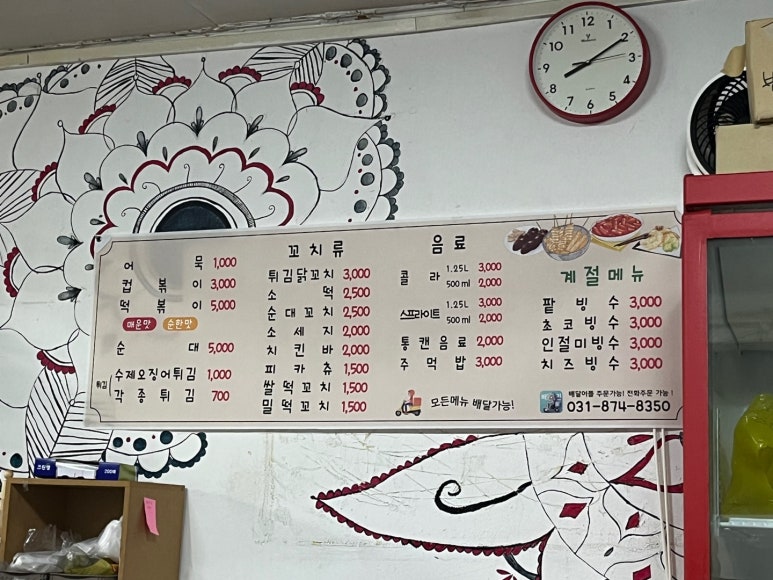 어묵 1,000
컵볶이 3,000
떡볶이 5,000
매운맛 순한맛
순대 5,000
튀김
수제오징어튀김 1,000
각종튀김 700
꼬치류
튀김닭꼬치 3,000
소떡 2,500
순대꼬치 2,500
소세지 2,000
치킨바 2,000
피카츄 1,500
쌀떡꼬치 1,500
밀떡꼬치 1,500
음료
콜라 1.25L 3,000
500ml 2,000
스프라이트 1.25L 3,000
500ml 2,000
통캔음료 2,000
주먹밥 3,000
모든메뉴 배달가능!
계절메뉴
팥빙수 3,000
초코빙수 3,000
인절미빙수 3,000
치즈빙수 3,000
배달어플 주문가능! 전화주문 가능!
031-874-8350
12
1
2
3
4
5
6
7
8
9
10
11